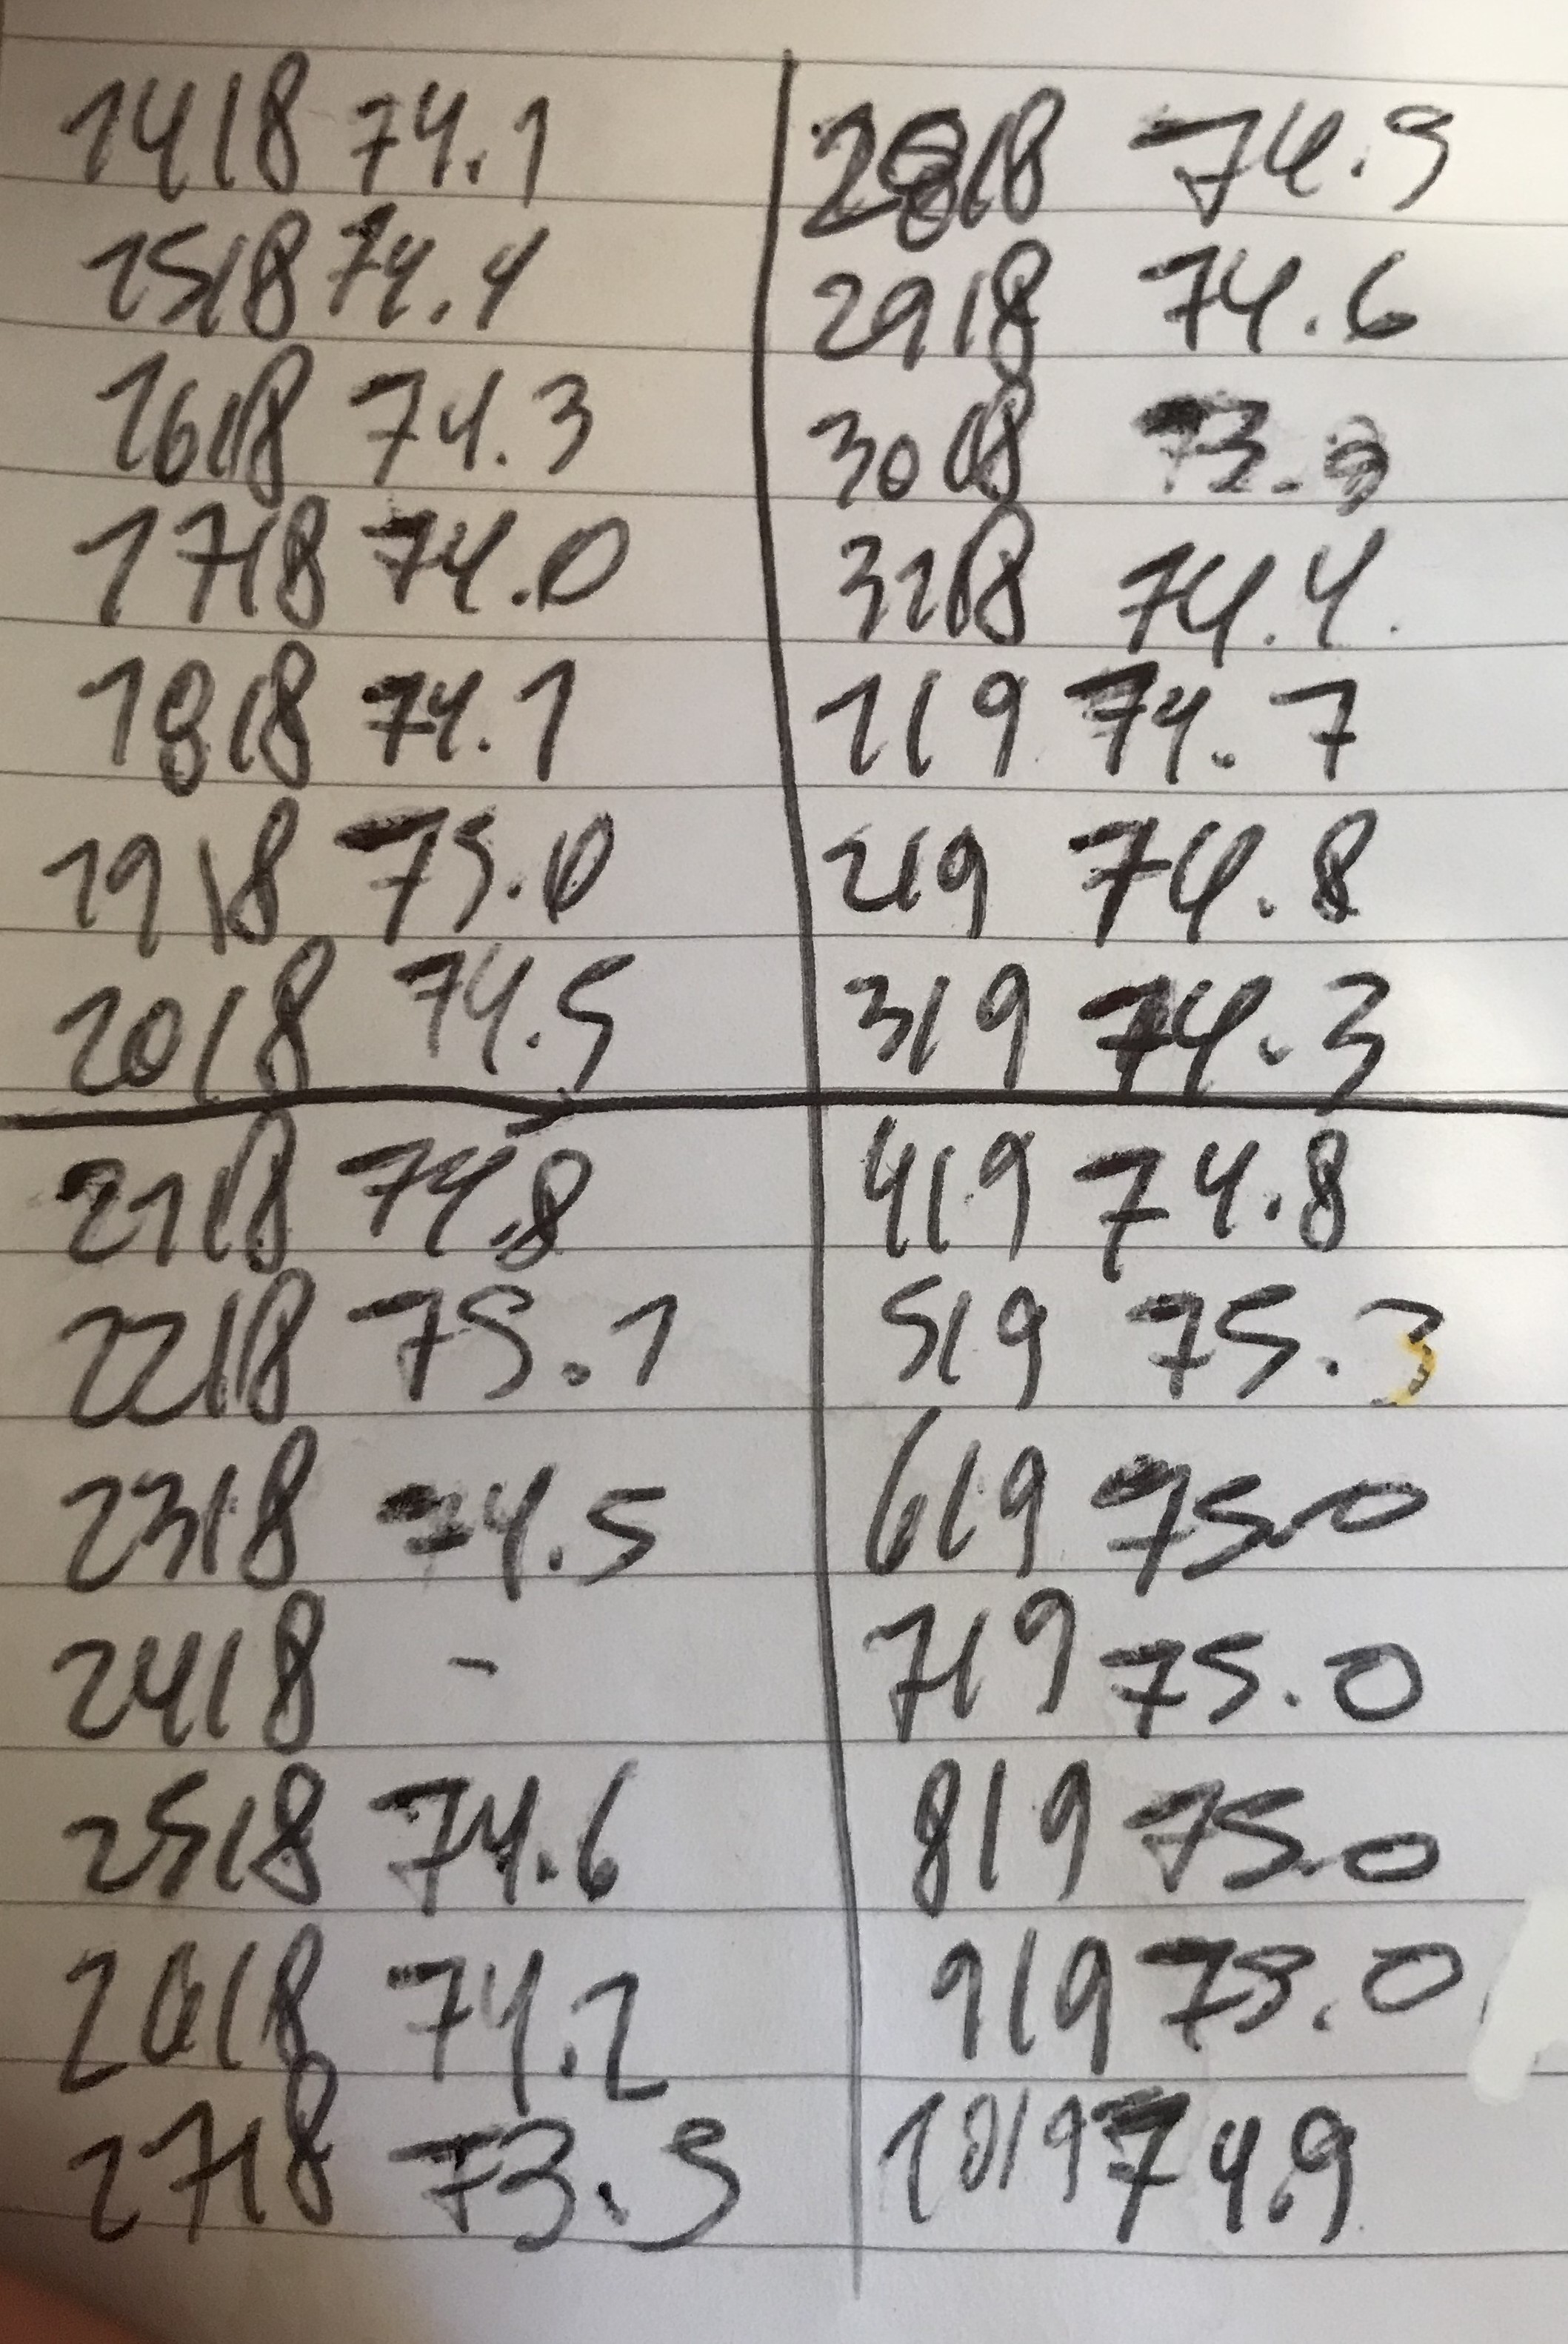 14/8 74.1
15/8 74.4
16/8 74.3
17/8 74.0
18/8 74.1
19/8 75.0
20/8 74.5
21/8 74.8
22/8 75.1
23/8 74.5
24/8 -
25/8 74.6
26/8 74.2
27/8 73.9
28/8 74.9
29/8 74.6
30/8
31/8 74.4
1/9 74.7
2/9 74.8
3/9 74.3
4/9 74.8
5/9 75.3
6/9 75.0
7/9 75.0
8/9 75.0
9/9 75.0
10/9 74.9